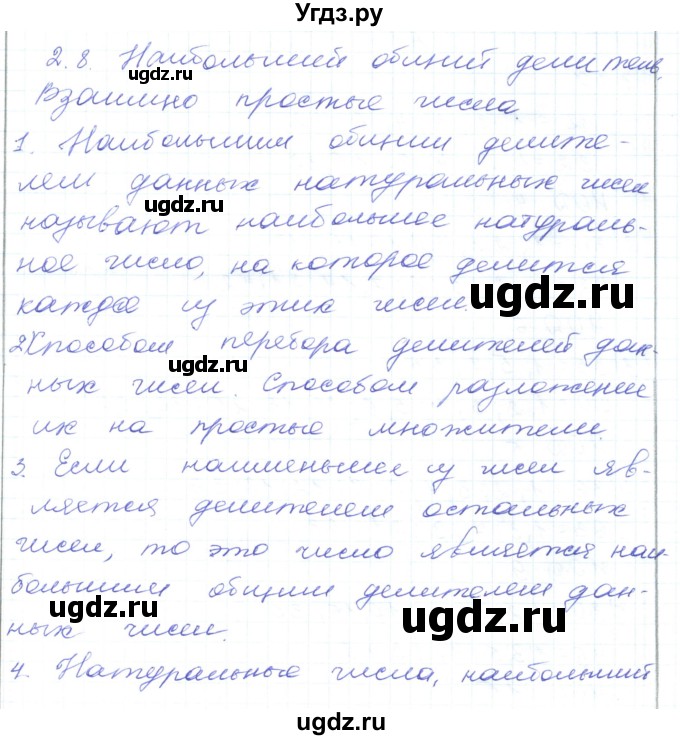 Угдз.ру
2.8. Наибольший общий делитель.
ugdz.ru
Взаимно простые числа.
1. Наибольшим общим делите-
лем данных натуральных чисел
ugdz.ru
называют наибольшее натураль-
ное число, на которое делится
каждое из этих чисел.
ugdz.ru
2. Способом перебора делителей дан-
ugdz.ru
ных чисел. Способом разложения
их на простые множители.
3. Если наименьшее из чисел яв-
ляется делителем остальных
чисел, то это число является наи-
большим общим делителем дан-
ugdz.ru
ugdz.ru
ных чисел.
4. Натуральные числа, наибольший
ugdz.ru